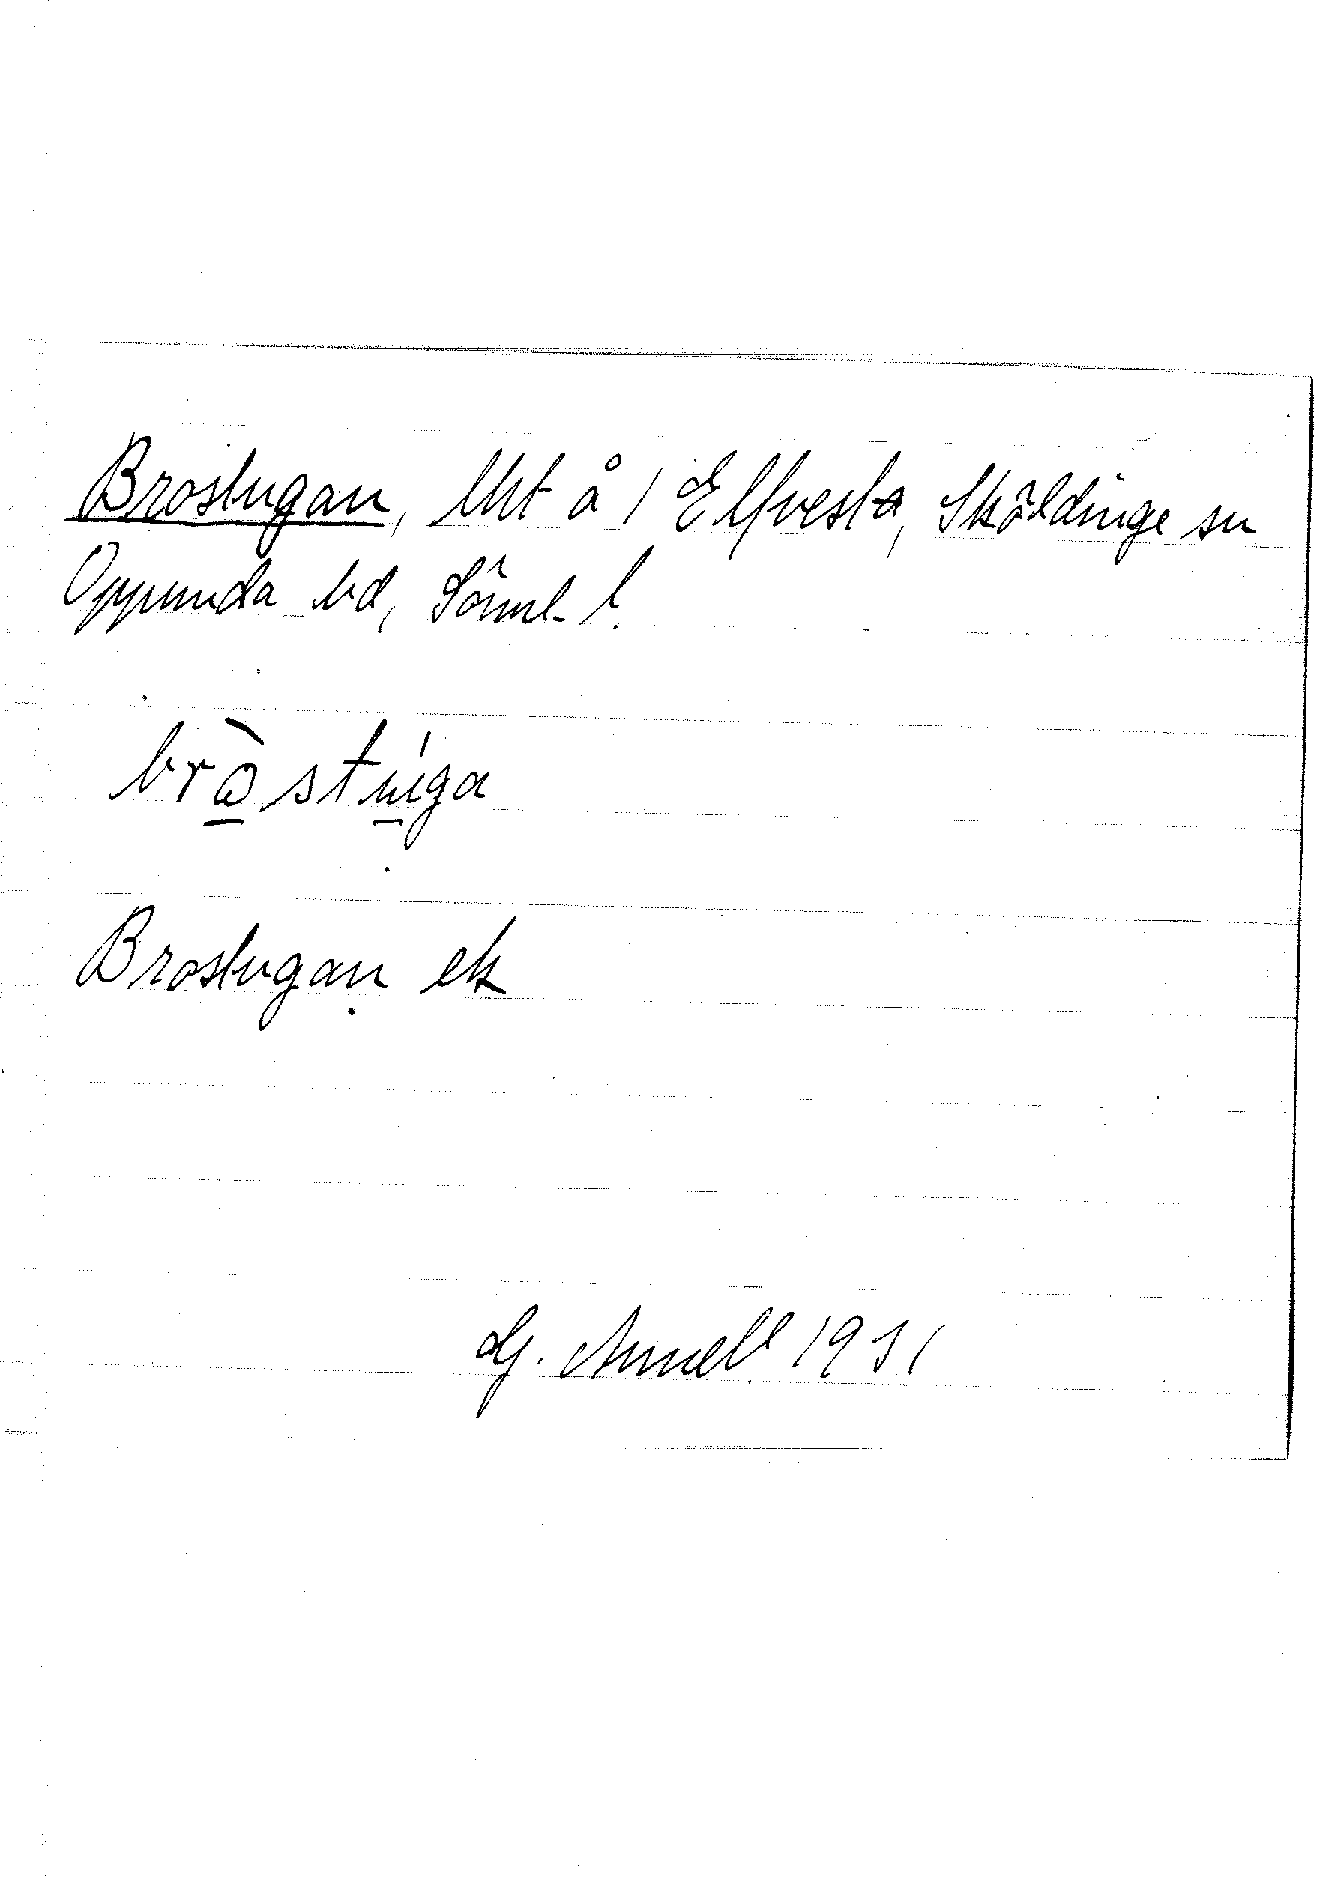 Brostugan, lht å 1 Elfvesta, Sköldinge sn
Oppunda hd, Söml. l.
bròstúga
Brostugan ek
G. Annell 1931